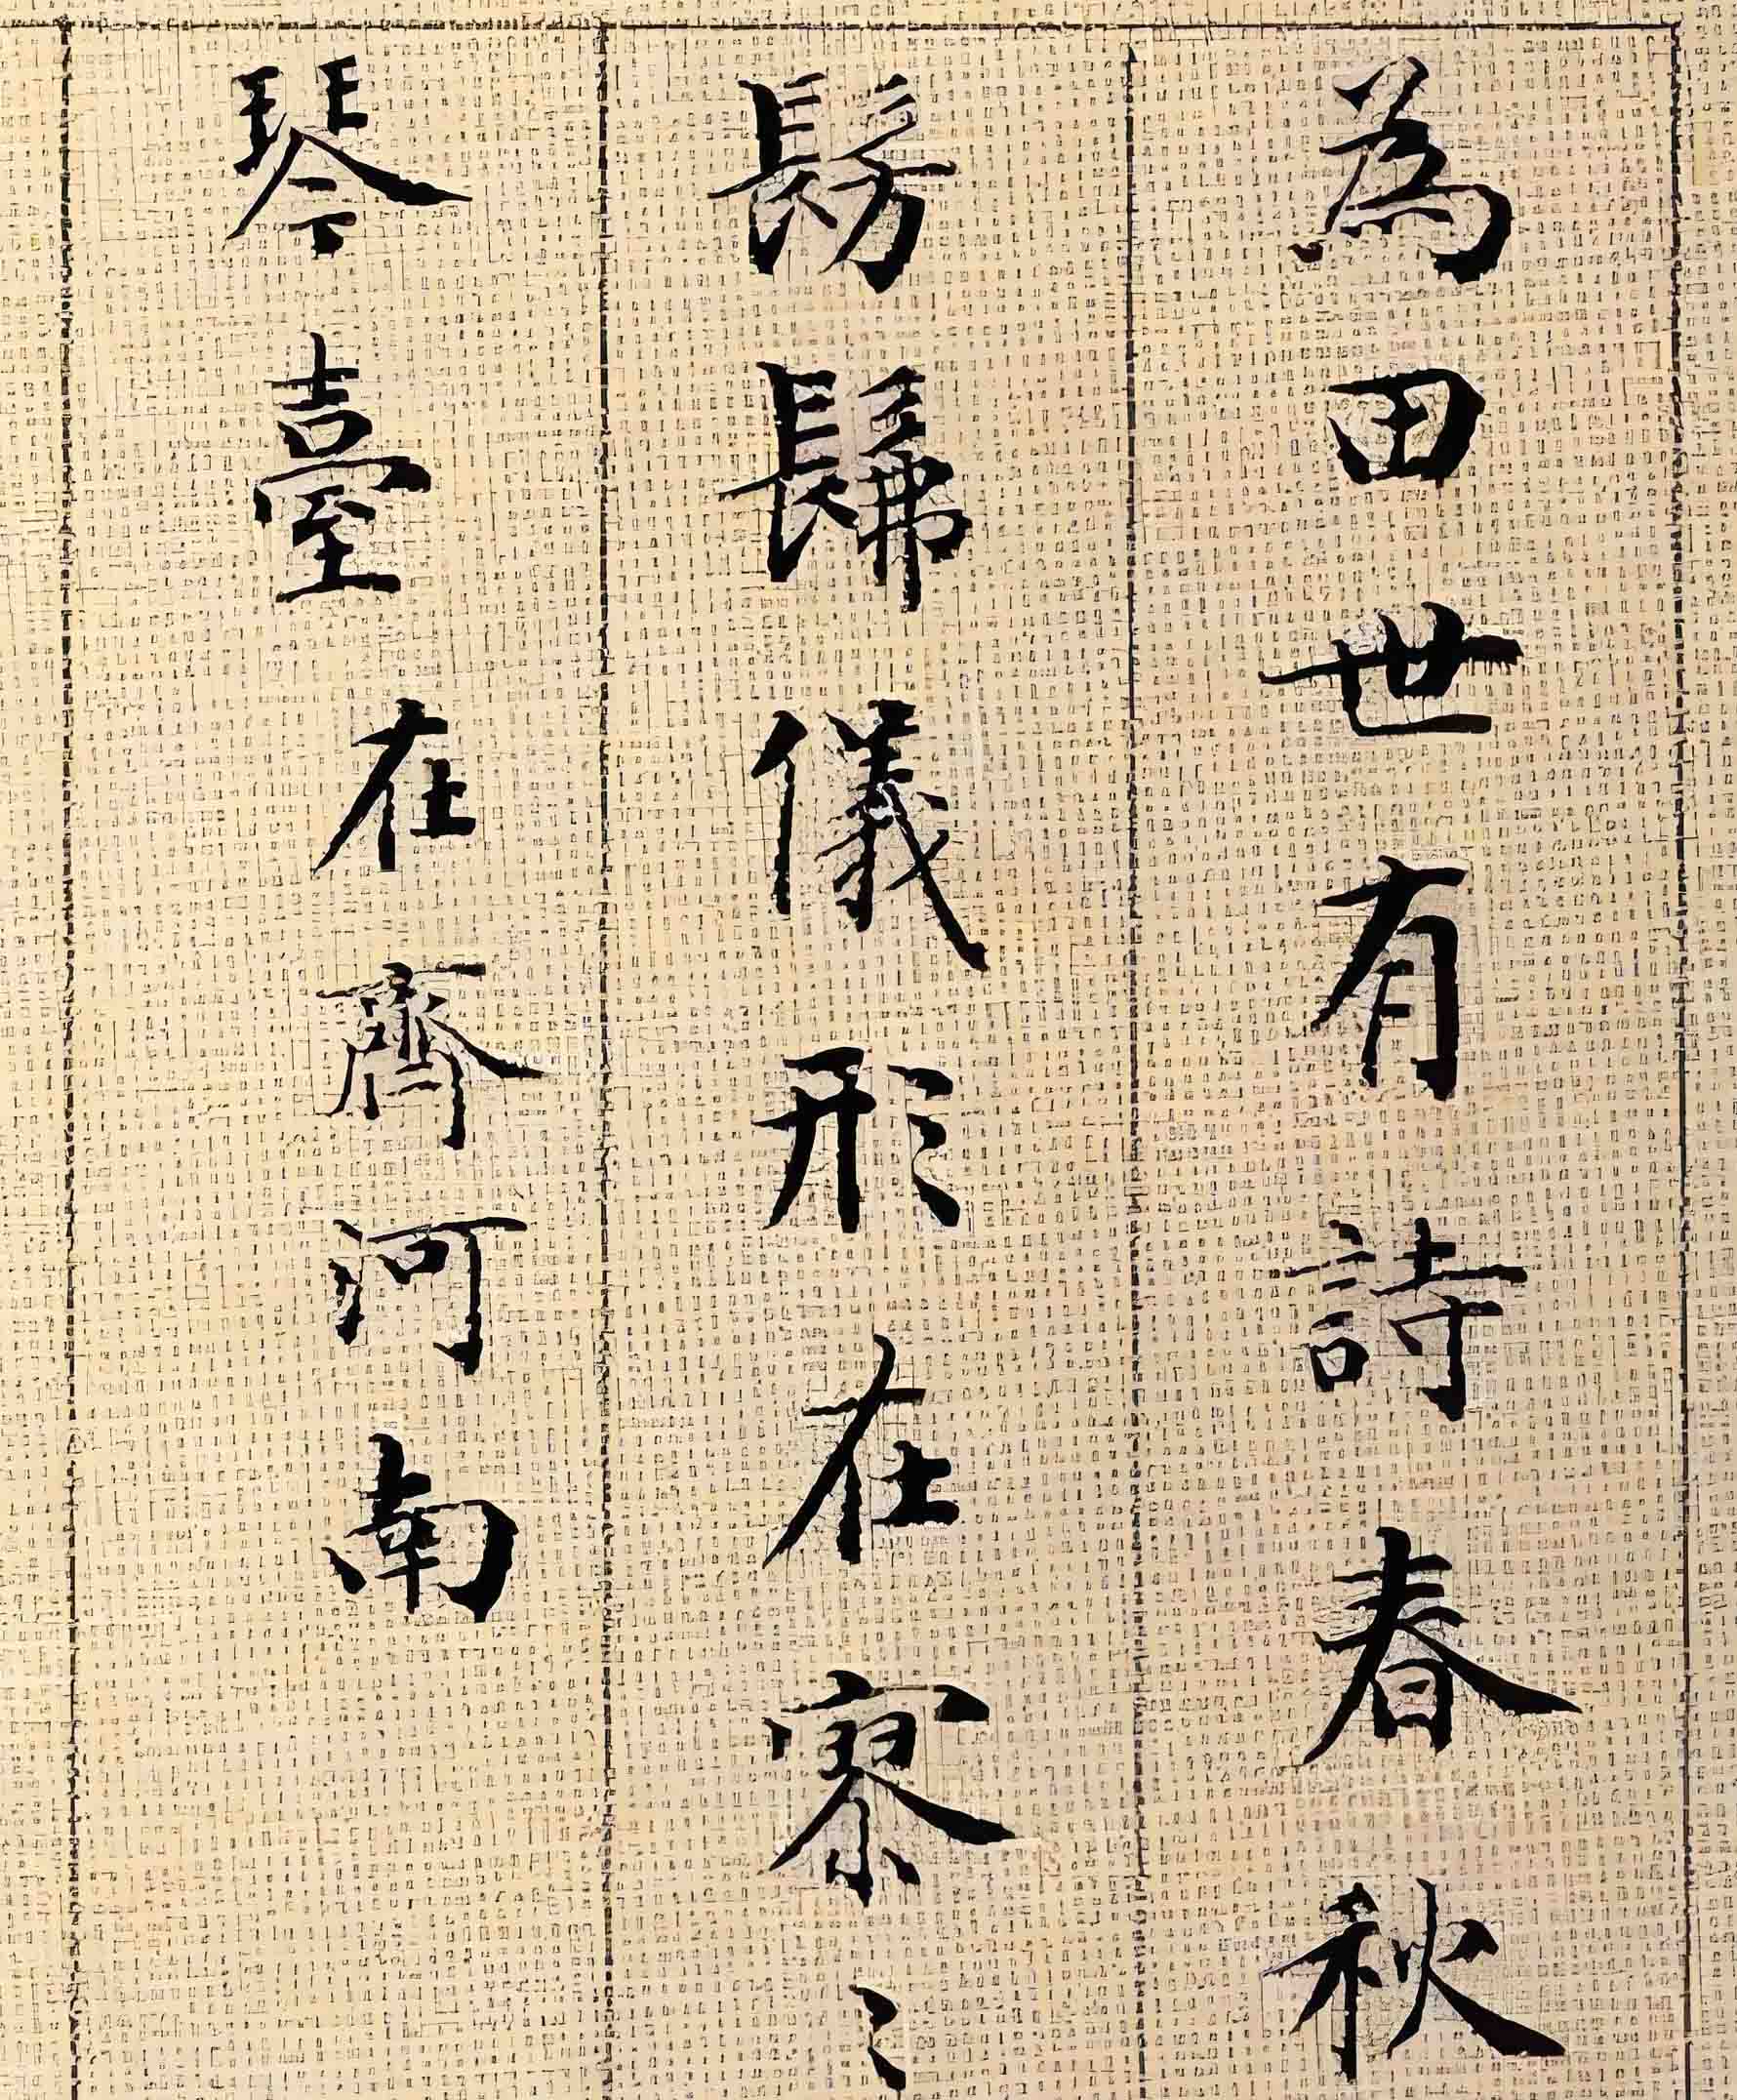 為田世有詩春秋
髣髴儀形在寥〻
琴臺在齊河南